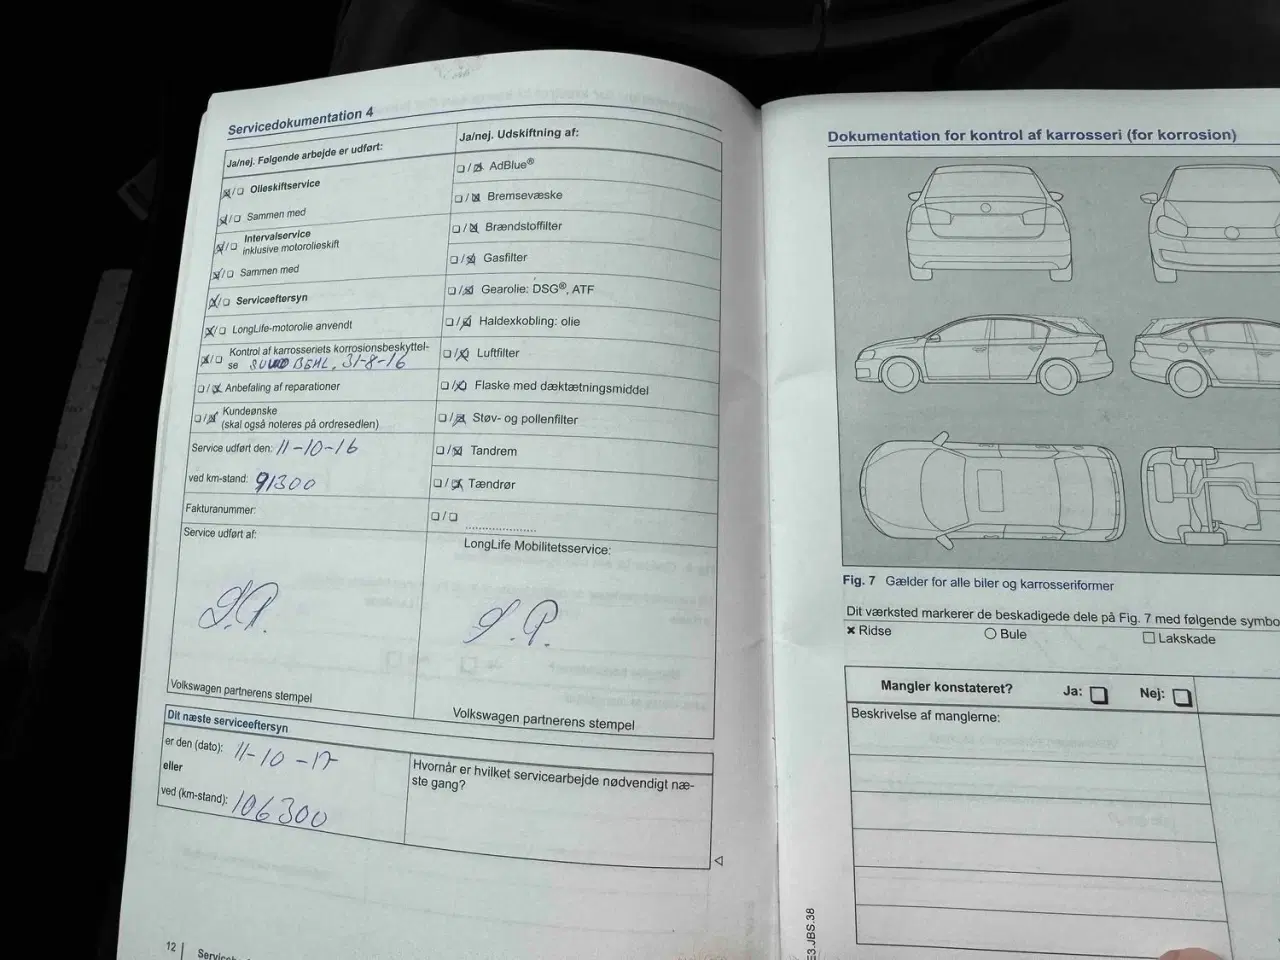 Servicedokumentation 4
Ja/nej. Følgende arbejde er udført:
Olieskiftservice
Sammen med
Intervalservice
inklusive motorolieskift
Sammen med
Serviceeftersyn
LongLife-motorolie anvendt
Kontrol af karrosseriets korrosionsbeskyttel-
se 31-8-16
Anbefaling af reparationer
Kundeønske
(skal også noteres på ordresedlen)
Service udført den: 11-10-16
ved km-stand: 91300
Fakturanummer:
Service udført af:
S.P.
Volkswagen partnerens stempel
Ja/nej. Udskiftning af:
AdBlue®
Bremsevæske
Brændstoffilter
Gasfilter
Gearolie: DSG®, ATF
Haldexkobling: olie
Luftfilter
Flaske med dæktætningsmiddel
Støv- og pollenfilter
Tandrem
Tændrør
LongLife Mobilitetsservice:
S.P.
Volkswagen partnerens stempel
Dit næste serviceeftersyn
er den (dato): 11-10-17
eller
ved (km-stand): 106300
Hvornår er hvilket servicearbejde nødvendigt næ-
ste gang?
12
Dokumentation for kontrol af karrosseri (for korrosion)
Fig. 7 Gælder for alle biler og karrosseriformer
Dit værksted markerer de beskadigede dele på Fig. 7 med følgende symbo
Ridse Bule Lakskade
Mangler konstateret? Ja: Nej:
Beskrivelse af manglerne:
E3.JBS.38